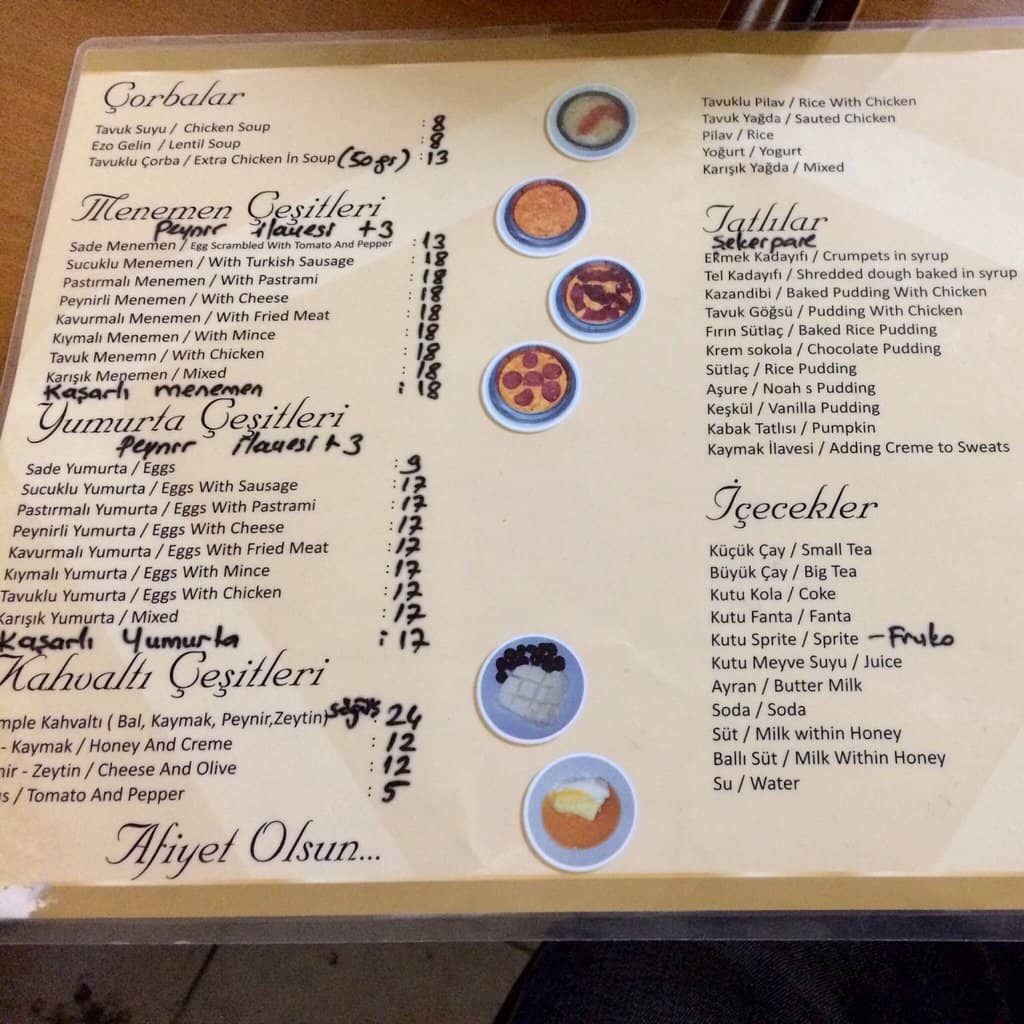 Çorbalar
Tavuk Suyu / Chicken Soup : 8
Ezo Gelin / Lentil Soup : 8
Tavuklu Çorba / Extra Chicken İn Soup (50 gs) : 13
Menemen Çeşitleri
Peynir ilavesi +3
Sade Menemen / Egg Scrambled With Tomato And Pepper : 13
Sucuklu Menemen / With Turkish Sausage : 18
Pastırmalı Menemen / With Pastrami : 18
Peynirli Menemen / With Cheese : 18
Kavurmalı Menemen / With Fried Meat : 18
Kıymalı Menemen / With Mince : 18
Tavuk Menemn / With Chicken : 18
Karışık Menemen / Mixed : 18
Kaşarlı menemen : 18
Yumurta Çeşitleri
Peynir ilavesi +3
Sade Yumurta / Eggs : 9
Sucuklu Yumurta / Eggs With Sausage : 17
Pastırmalı Yumurta / Eggs With Pastrami : 17
Peynirli Yumurta / Eggs With Cheese : 17
Kavurmalı Yumurta / Eggs With Fried Meat : 17
Kıymalı Yumurta / Eggs With Mince : 17
Tavuklu Yumurta / Eggs With Chicken : 17
Karışık Yumurta / Mixed : 17
Kaşarlı Yumurta : 17
Kahvaltı Çeşitleri
mple Kahvaltı ( Bal, Kaymak, Peynir,Zeytin) söğüş 24
- Kaymak / Honey And Creme : 12
nir - Zeytin / Cheese And Olive : 12
s / Tomato And Pepper : 5
Afiyet Olsun...
Tavuklu Pilav / Rice With Chicken
Tavuk Yağda / Sauted Chicken
Pilav / Rice
Yoğurt / Yogurt
Karışık Yağda / Mixed
Tatlılar
Şekerpare
Ekmek Kadayıfı / Crumpets in syrup
Tel Kadayıfı / Shredded dough baked in syrup
Kazandibi / Baked Pudding With Chicken
Tavuk Göğsü / Pudding With Chicken
Fırın Sütlaç / Baked Rice Pudding
Krem sokola / Chocolate Pudding
Sütlaç / Rice Pudding
Aşure / Noah s Pudding
Keşkül / Vanilla Pudding
Kabak Tatlısı / Pumpkin
Kaymak İlavesi / Adding Creme to Sweats
İçecekler
Küçük Çay / Small Tea
Büyük Çay / Big Tea
Kutu Kola / Coke
Kutu Fanta / Fanta
Kutu Sprite / Sprite - Fruko
Kutu Meyve Suyu / Juice
Ayran / Butter Milk
Soda / Soda
Süt / Milk within Honey
Ballı Süt / Milk Within Honey
Su / Water